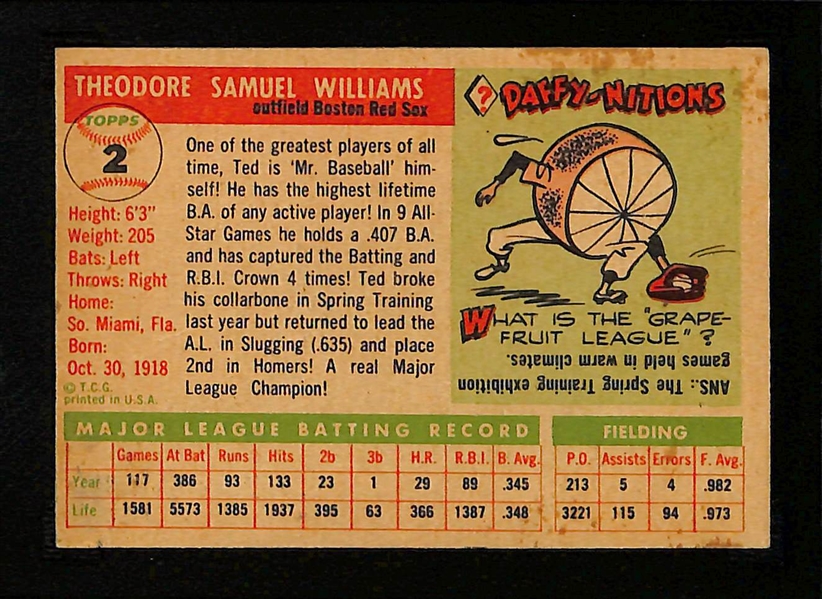 THEODORE SAMUEL WILLIAMS
outfield Boston Red Sox
TOPPS
2
Height: 6'3"
Weight: 205
Bats: Left
Throws: Right
Home:
So. Miami, Fla.
Born:
Oct. 30, 1918
© T.C.G.
printed in U.S.A.
One of the greatest players of all
time, Ted is 'Mr. Baseball' him-
self! He has the highest lifetime
B.A. of any active player! In 9 All-
Star Games he holds a .407 B.A.
and has captured the Batting and
R.B.I. Crown 4 times! Ted broke
his collarbone in Spring Training
last year but returned to lead the
A.L. in Slugging (.635) and place
2nd in Homers! A real Major
League Champion!
? DAFFY-NITIONS
WHAT IS THE "GRAPE-
FRUIT LEAGUE"?
ANS.: The Spring Training exhibition
games held in warm climates.
MAJOR LEAGUE BATTING RECORD FIELDING
Games At Bat Runs Hits 2b 3b H.R. R.B.I. B. Avg. P.O. Assists Errors F. Avg.
Year 117 386 93 133 23 1 29 89 .345 213 5 4 .982
Life 1581 5573 1385 1937 395 63 366 1387 .348 3221 115 94 .973